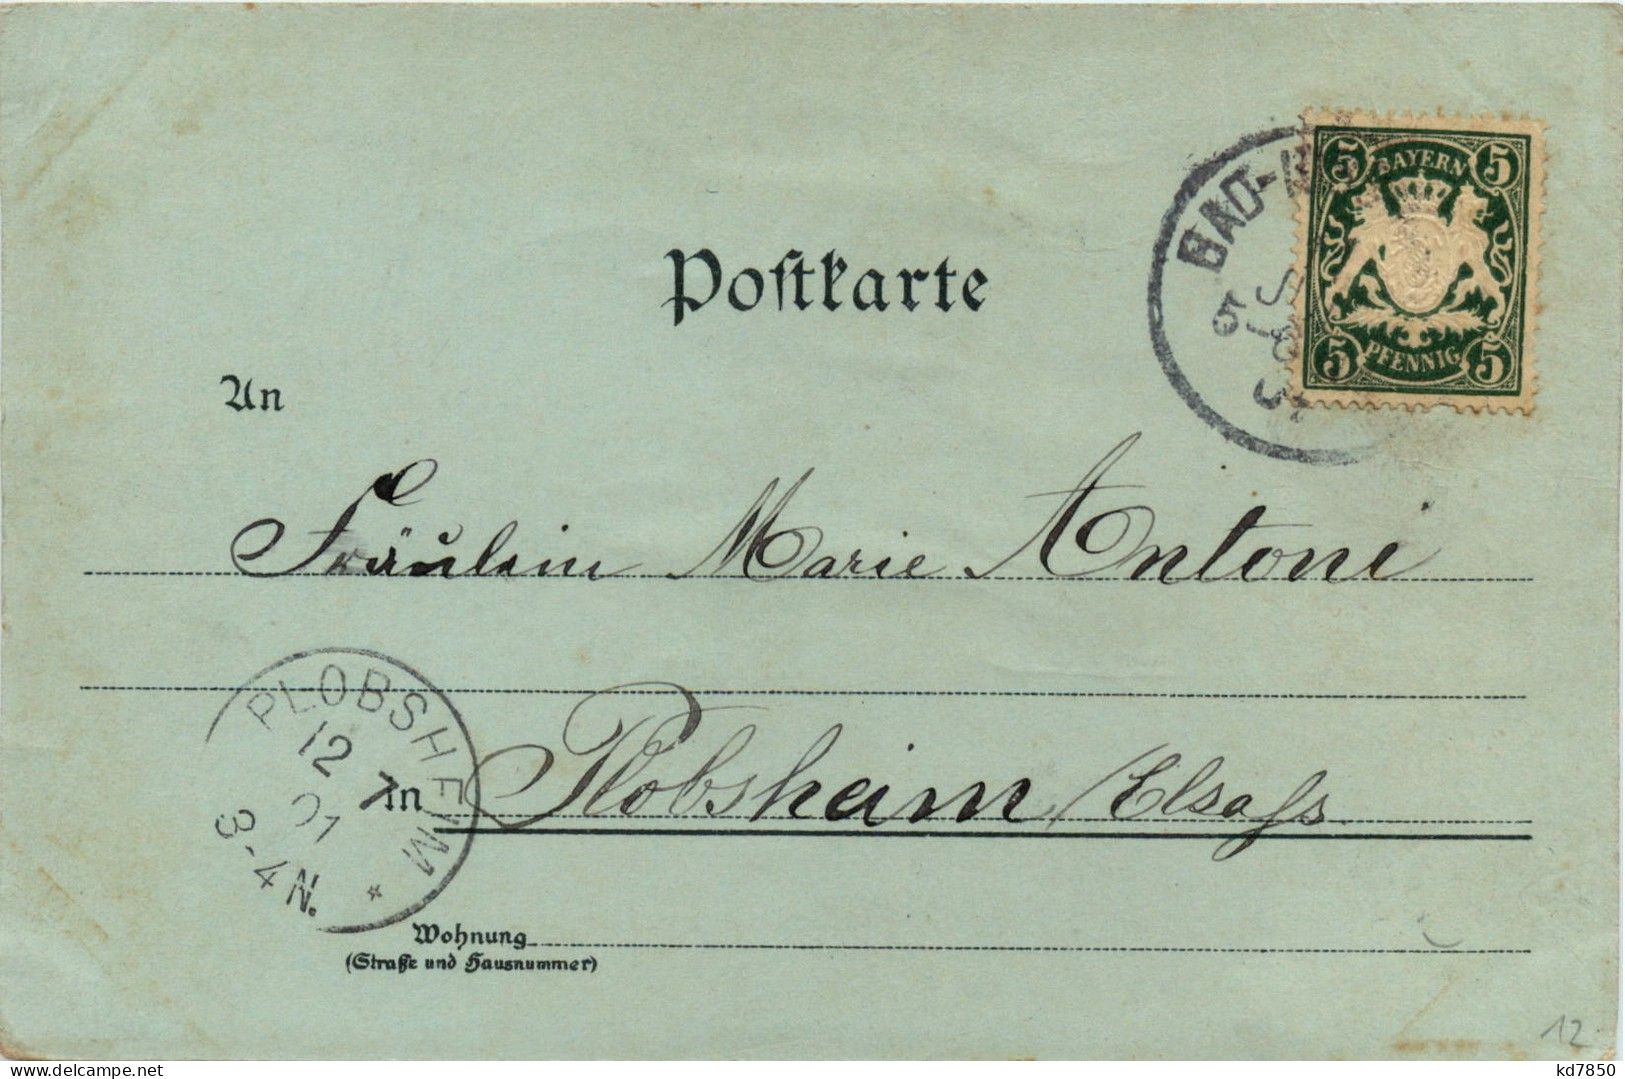 BAYERN
5 5
5 5
PFENNIG
BAD-
Postkarte
An
Fräulein Marie Antoni
PLOBSHEIM
12 7
01
3-4N.
in Plobsheim, Elsass.
Wohnung
(Straße und Hausnummer)
12
kd7850